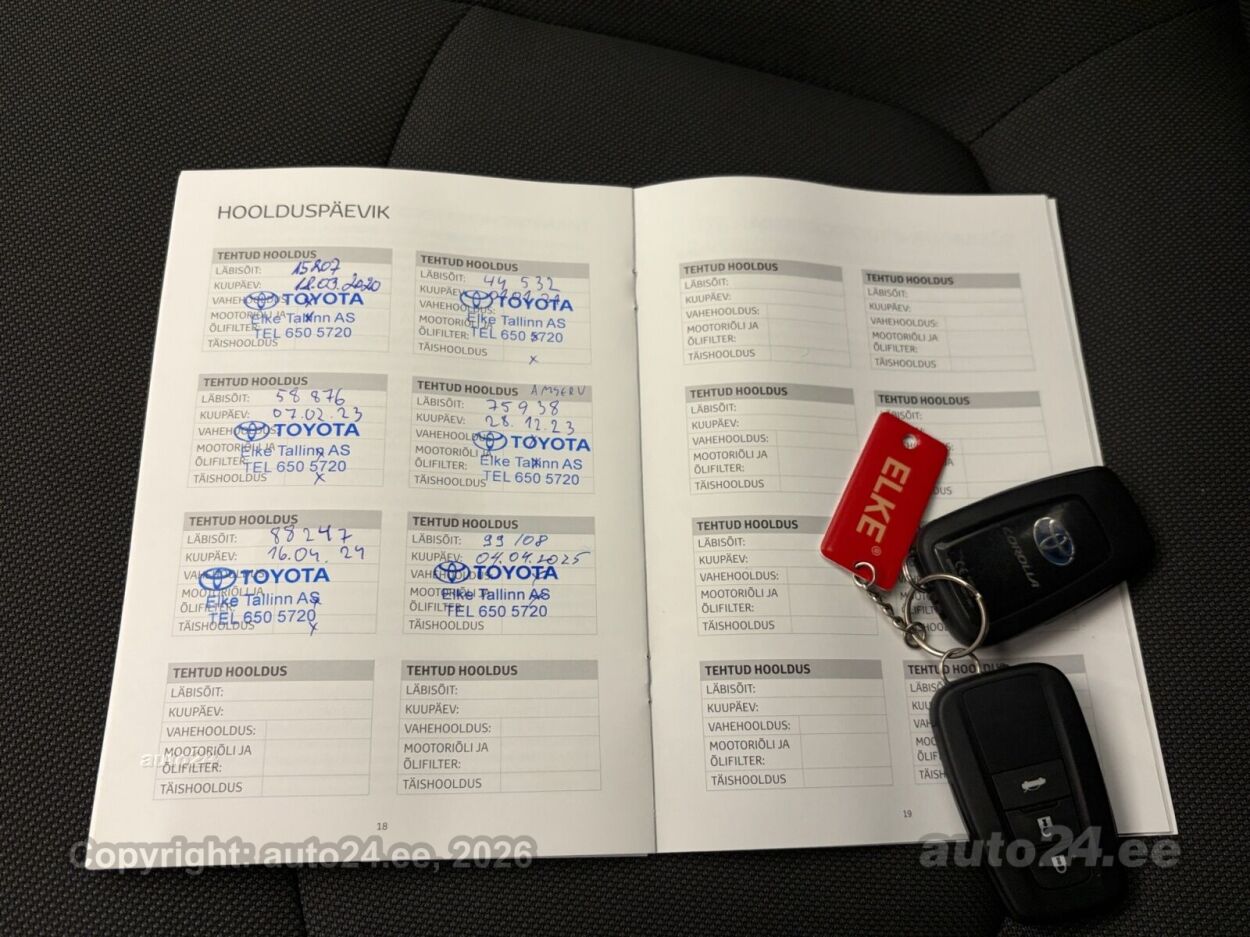 HOOLDUSPÄEVIK
TEHTUD HOOLDUS
LÄBISÕIT: 15207
KUUPÄEV: 12.03.2020
VAHEHOOLDUS:
TOYOTA
MOOTORIÕLI JA x
Elke Tallinn AS
ÕLIFILTER:
TEL 650 5720
TÄISHOOLDUS
TEHTUD HOOLDUS
LÄBISÕIT: 44 532
KUUPÄEV:
VAHEHOOLDUS:
TOYOTA
MOOTORIÕLI JA
Elke Tallinn AS
ÕLIFILTER: x
TEL 650 5720
TÄISHOOLDUS x
TEHTUD HOOLDUS
LÄBISÕIT: 58 876
KUUPÄEV: 07.02.23
VAHEHOOLDUS:
TOYOTA
MOOTORIÕLI JA x
Elke Tallinn AS
ÕLIFILTER:
TEL 650 5720
TÄISHOOLDUS x
TEHTUD HOOLDUS AMSERV
LÄBISÕIT: 75938
KUUPÄEV: 28.12.23
VAHEHOOLDUS:
TOYOTA
MOOTORIÕLI JA x
Elke Tallinn AS
ÕLIFILTER:
TEL 650 5720
TÄISHOOLDUS
TEHTUD HOOLDUS
LÄBISÕIT: 88247
KUUPÄEV: 16.04.24
VAHEHOOLDUS:
TOYOTA
MOOTORIÕLI JA x
Elke Tallinn AS
ÕLIFILTER:
TEL 650 5720
TÄISHOOLDUS x
TEHTUD HOOLDUS
LÄBISÕIT: 99 108
KUUPÄEV: 04.04.2025
VAHEHOOLDUS:
TOYOTA
MOOTORIÕLI JA x
Elke Tallinn AS
ÕLIFILTER:
TEL 650 5720
TÄISHOOLDUS
TEHTUD HOOLDUS
LÄBISÕIT:
KUUPÄEV:
VAHEHOOLDUS:
MOOTORIÕLI JA
ÕLIFILTER:
TÄISHOOLDUS
TEHTUD HOOLDUS
LÄBISÕIT:
KUUPÄEV:
VAHEHOOLDUS:
MOOTORIÕLI JA
ÕLIFILTER:
TÄISHOOLDUS
18
TEHTUD HOOLDUS
LÄBISÕIT:
KUUPÄEV:
VAHEHOOLDUS:
MOOTORIÕLI JA
ÕLIFILTER:
TÄISHOOLDUS
TEHTUD HOOLDUS
LÄBISÕIT:
KUUPÄEV:
VAHEHOOLDUS:
MOOTORIÕLI JA
ÕLIFILTER:
TÄISHOOLDUS
TEHTUD HOOLDUS
LÄBISÕIT:
KUUPÄEV:
VAHEHOOLDUS:
MOOTORIÕLI JA
ÕLIFILTER:
TÄISHOOLDUS
TEHTUD HOOLDUS
TEHTUD HOOLDUS
LÄBISÕIT:
KUUPÄEV:
VAHEHOOLDUS:
MOOTORIÕLI JA
ÕLIFILTER:
TÄISHOOLDUS
TEHTUD HOOLDUS
LÄBISÕIT:
KUUPÄEV:
VAHEHOOLDUS:
MOOTORIÕLI JA
ÕLIFILTER:
TÄISHOOLDUS
TEHTUD HOOLDUS
19
ELKE®
COROLLA
auto24
Copyright: auto24.ee, 2026
auto24.ee